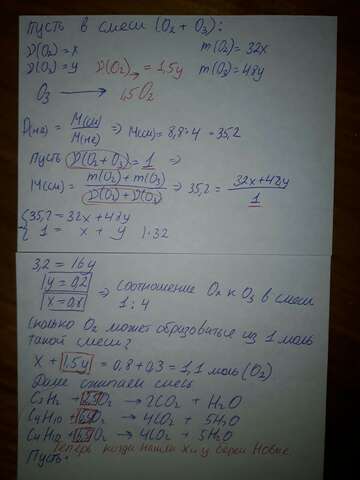 Пусть в смеси (O₂ + O₃):
ν(O₂) = x m(O₂) = 32x
ν(O₃) = y ν(O₂) = 1,5y m(O₃) = 48y
O₃ → 1,5O₂
D(He) = M(см)/M(He) ⇒ M(см) = 8,8·4 = 35,2
Пусть ν(O₂ + O₃) = 1 ⇒
M(см) = (m(O₂) + m(O₃))/(ν(O₂) + ν(O₃)) ⇒ 35,2 = (32x + 48y)/1
{35,2 = 32x + 48y
{1 = x + y |·32
3,2 = 16y
y = 0,2
x = 0,8 ⇒ соотношение O₂ к O₃ в смеси 1:4
Сколько O₂ может образоваться из 1 моль
такой смеси?
x + 1,5y = 0,8 + 0,3 = 1,1 моль (O₂)
Далее сжигаем смесь
C₂H₂ + 2,5O₂ → 2CO₂ + H₂O
C₄H₁₀ + 6,5O₂ → 4CO₂ + 5H₂O
C₄H₁₀ + 6,5O₂ → 4CO₂ + 5H₂O
Теперь когда нашли x и y берем новые
Пусть